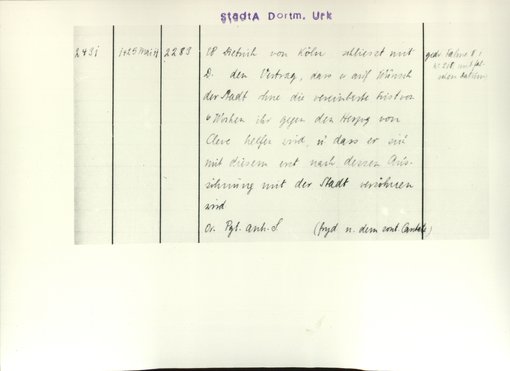 StadtA Dortm. Urk
2431 1425 Mai 14 2283 EB Dietrich von Köln schliesst mit
D. den Vertrag, dass er auf Wunsch
der Stadt ohne die vereinbarte Frist von
6 Wochen ihr gegen den Herzog von
Cleve helfen wird, u dass er sich
mit diesem erst nach dessen Aus-
söhnung mit der Stadt versöhnen
wird
Or. Pgt. anh. S (fryd n. dem sont. Cantate)
gedr. Fahne II 1
mit fal-
schem Datum